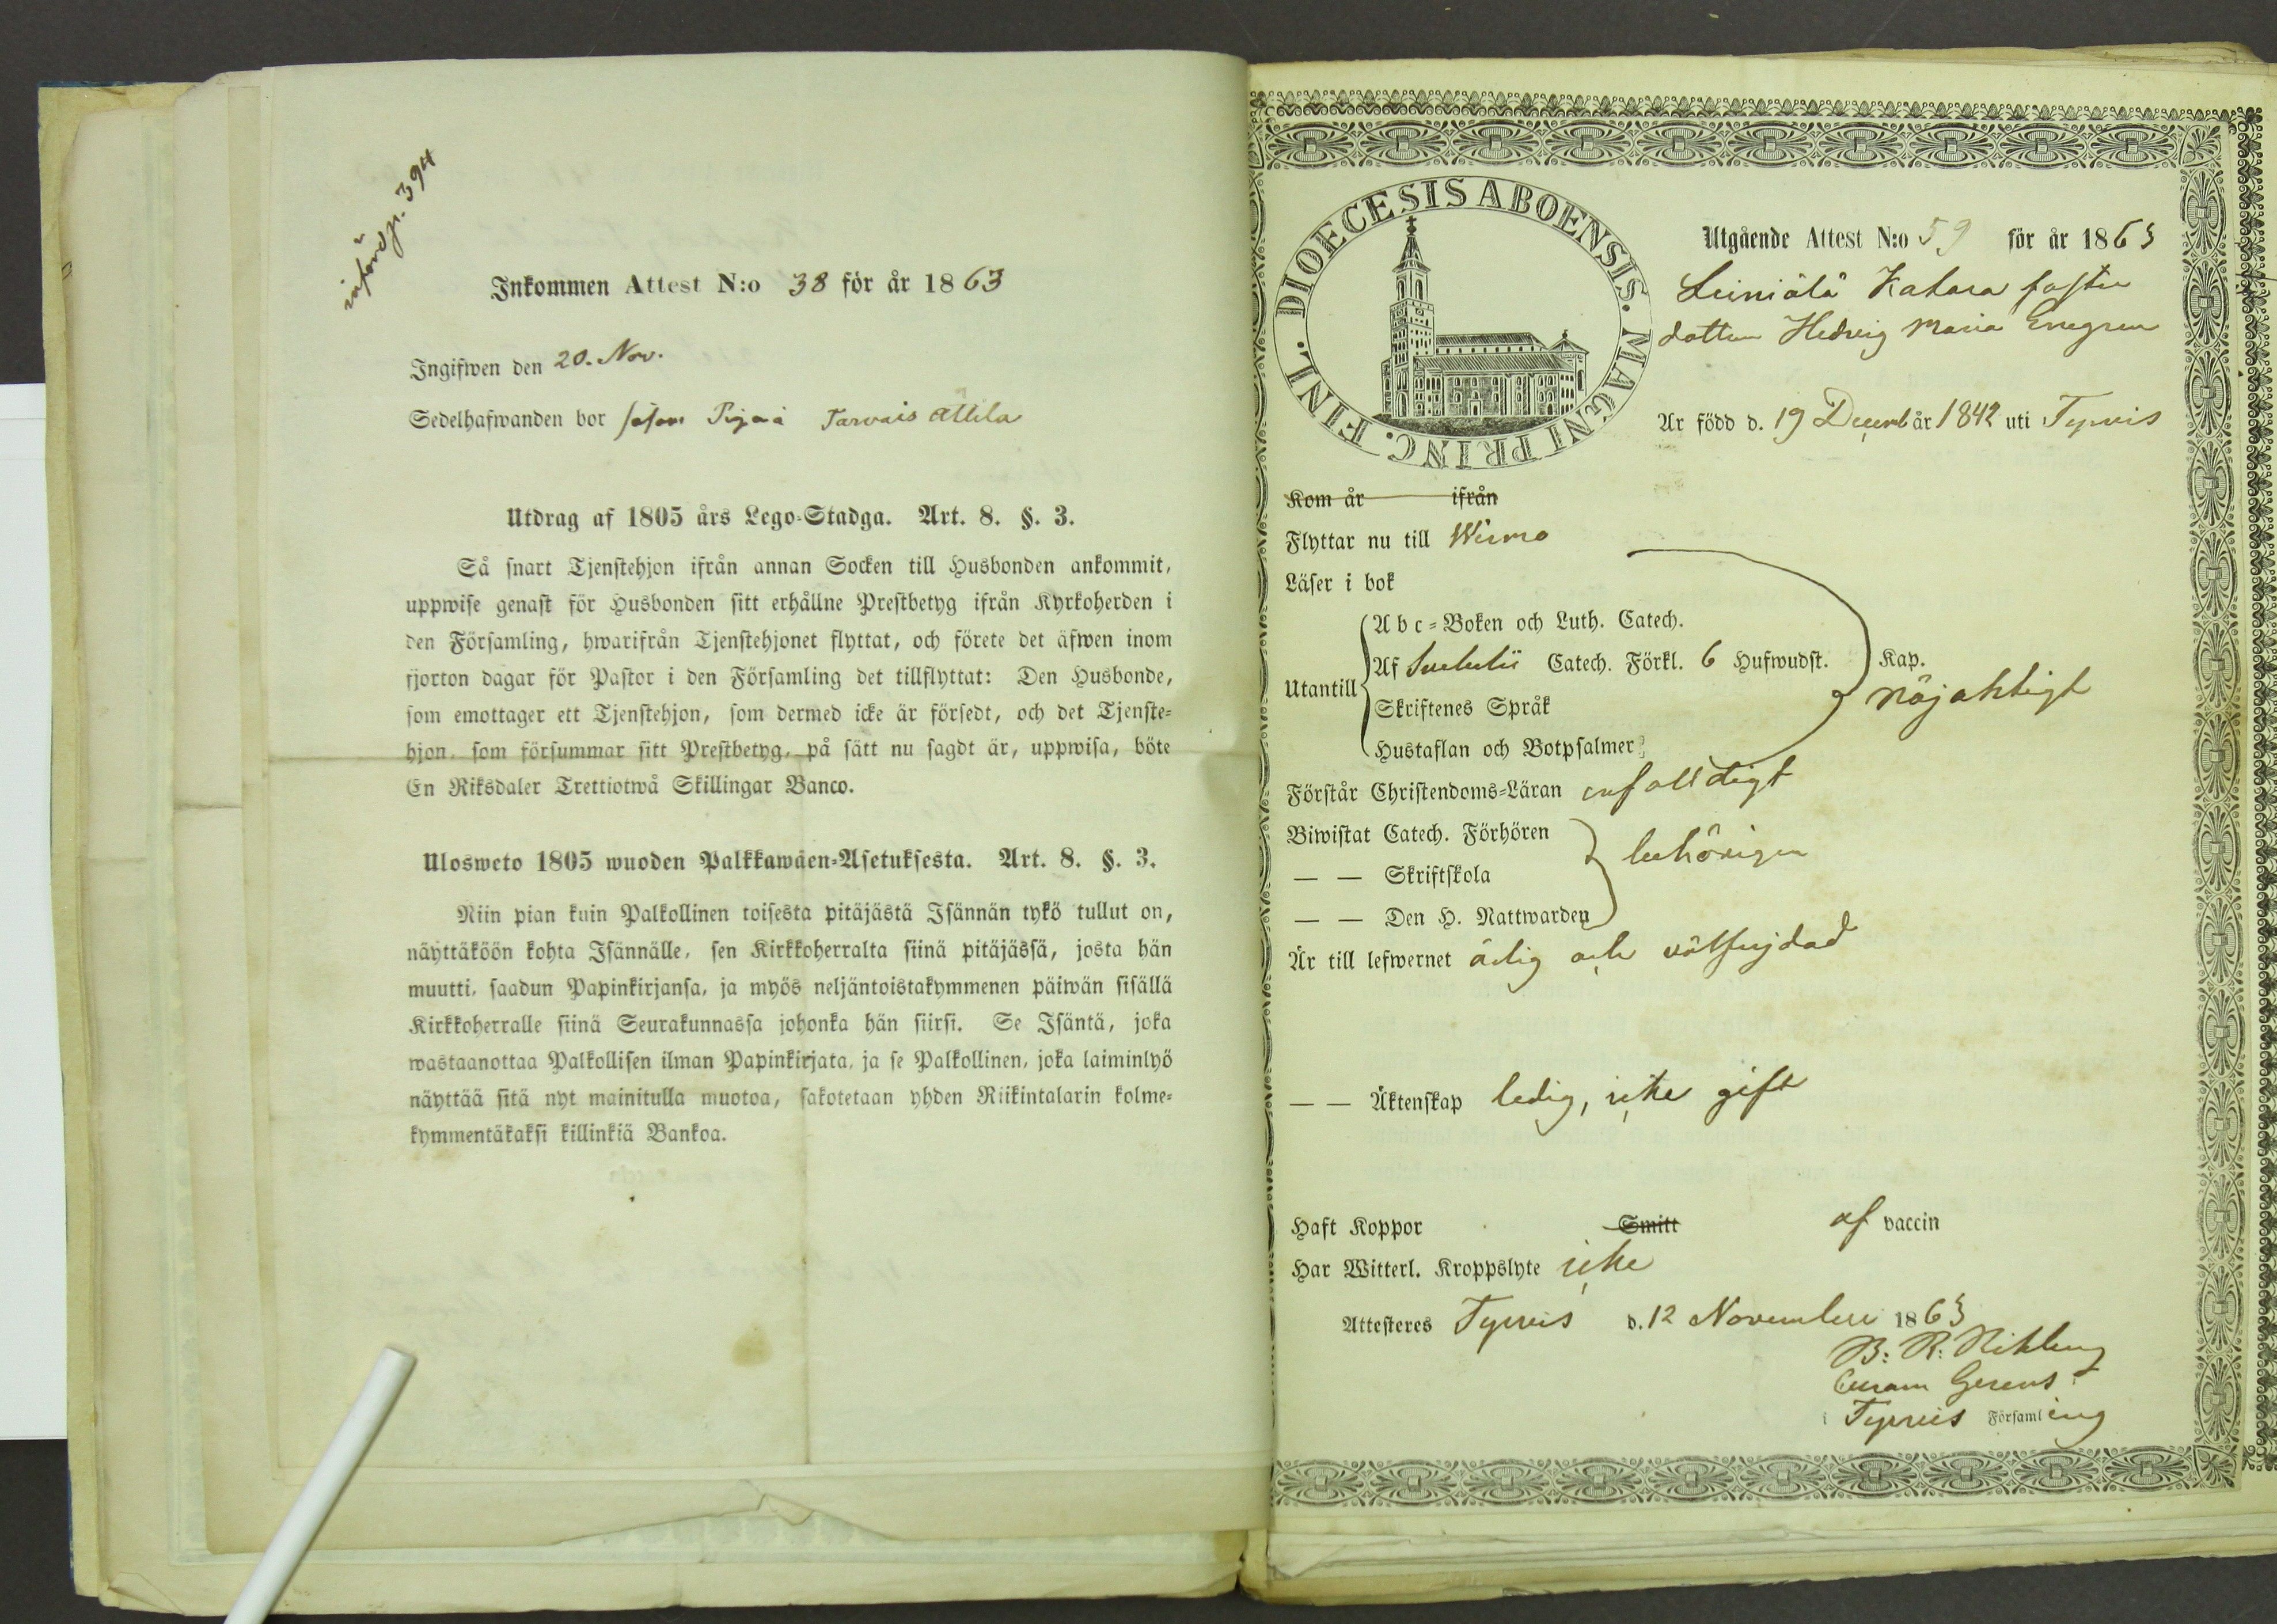 införd p. 394
Inkommen Attest N:o 38 för år 1863
Ingifwen den 20. Nov.
Sedelhafwanden bor såsom Piga å Tarvais Attila
Utdrag af 1805 års Lego-Stadga. Art. 8. §. 3.
Så snart Tjenstehjon ifrån annan Socken till Husbonden ankommit,
uppwise genast för Husbonden sitt erhållne Prestbetyg ifrån Kyrkoherden i
den Församling, hwarifrån Tjenstehjonet flyttat, och förete det äfwen inom
fjorton dagar för Pastor i den Församling det tillflyttat: Den Husbonde,
som emottager ett Tjenstehjon, som dermed icke är försedt, och det Tjenste-
hjon, som försummar sitt Prestbetyg, på sätt nu sagdt är, uppwisa, böte
En Riksdaler Trettiotwå Skillingar Banco.
Ulosweto 1805 wuoden Palkkawäen-Asetuksesta. Art. 8. §. 3.
Niin pian kuin Palkollinen toisesta pitäjästä Isännän tykö tullut on,
näyttäköön kohta Isännälle, sen Kirkkoherralta siinä pitäjässä, josta hän
muutti, saadun Papinkirjansa, ja myös neljäntoistakymmenen päiwän sisällä
Kirkkoherralle siinä Seurakunnassa johonka hän siirsi. Se Isäntä, joka
wastaanottaa Palkollisen ilman Papinkirjata, ja se Palkollinen, joka laiminlyö
näyttää sitä nyt mainitulla muotoa, sakotetaan yhden Riikintalarin kolme-
kymmentäkaksi killinkiä Bankoa.
DIOECESIS ABOENSIS. MAGNI PRINC. FINL.
Utgående Attest N:o 59 för år 1863
Leiniälä Katara foster
dottern Hedvig Maria Enegren
Är född d. 19 Decemb år 1842 uti Tyrvis
Kom år ifrån
Flyttar nu till Wirmo
Läser i bok
Utantill
Abc-Boken och Luth. Catech.
Af Svebelii Catech. Förkl. 6 Hufwudst. Kap.
Skriftenes Språk
Hustaflan och Botpsalmer
nöjaktigt
Förstår Christendoms-Läran enfalldigt
Biwistat Catech. Förhören
— — Skriftskola
— — Den H. Nattwarden
behörigen
Är till lefwernet ärlig och välfrejdad
— — Äktenskap ledig, icke gift
Haft Koppor Smitt af vaccin
Har Witterl. Kroppslyte icke
Attesteres Tyrvis d. 12 November 1863
B: R:
Curam Gerens
i Tyrvis Församling